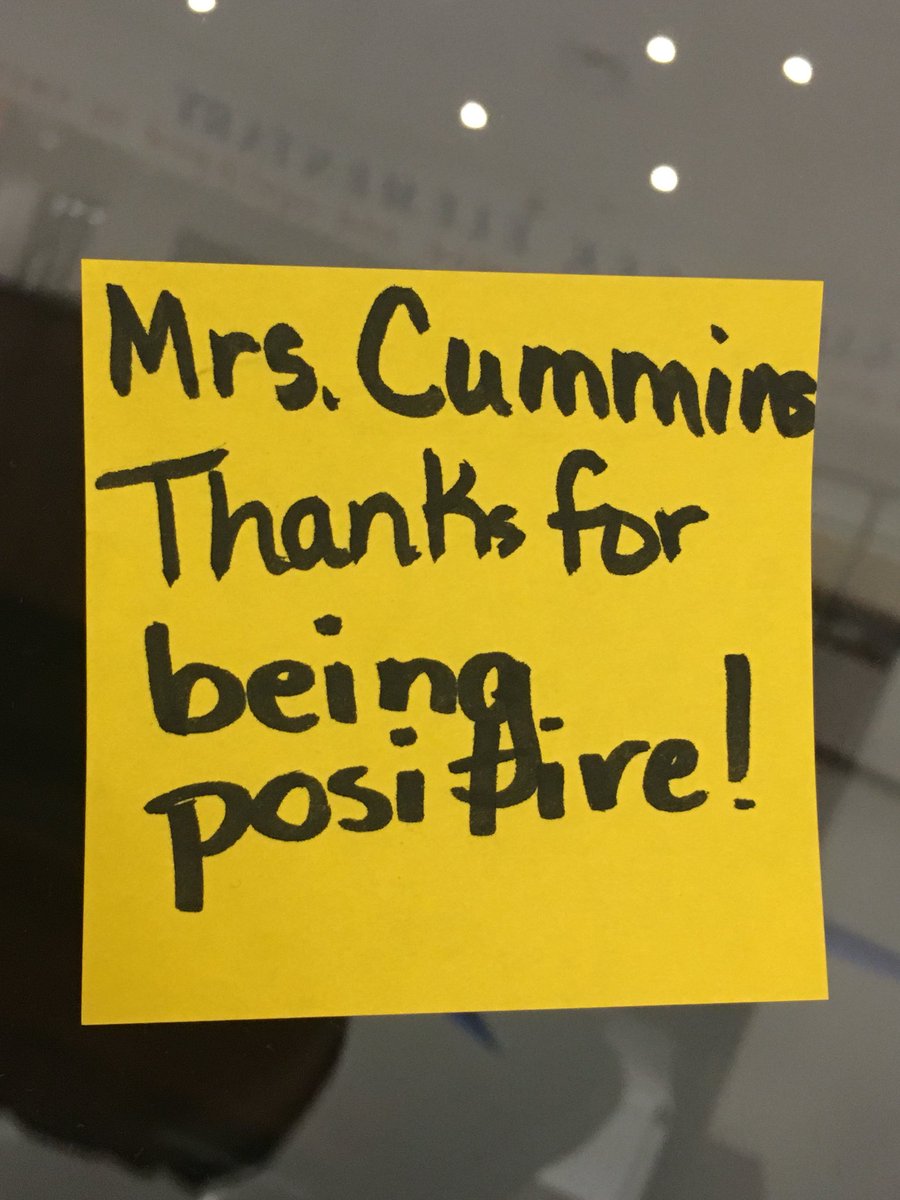 Mrs. Cummins
Thanks for
being
positive!